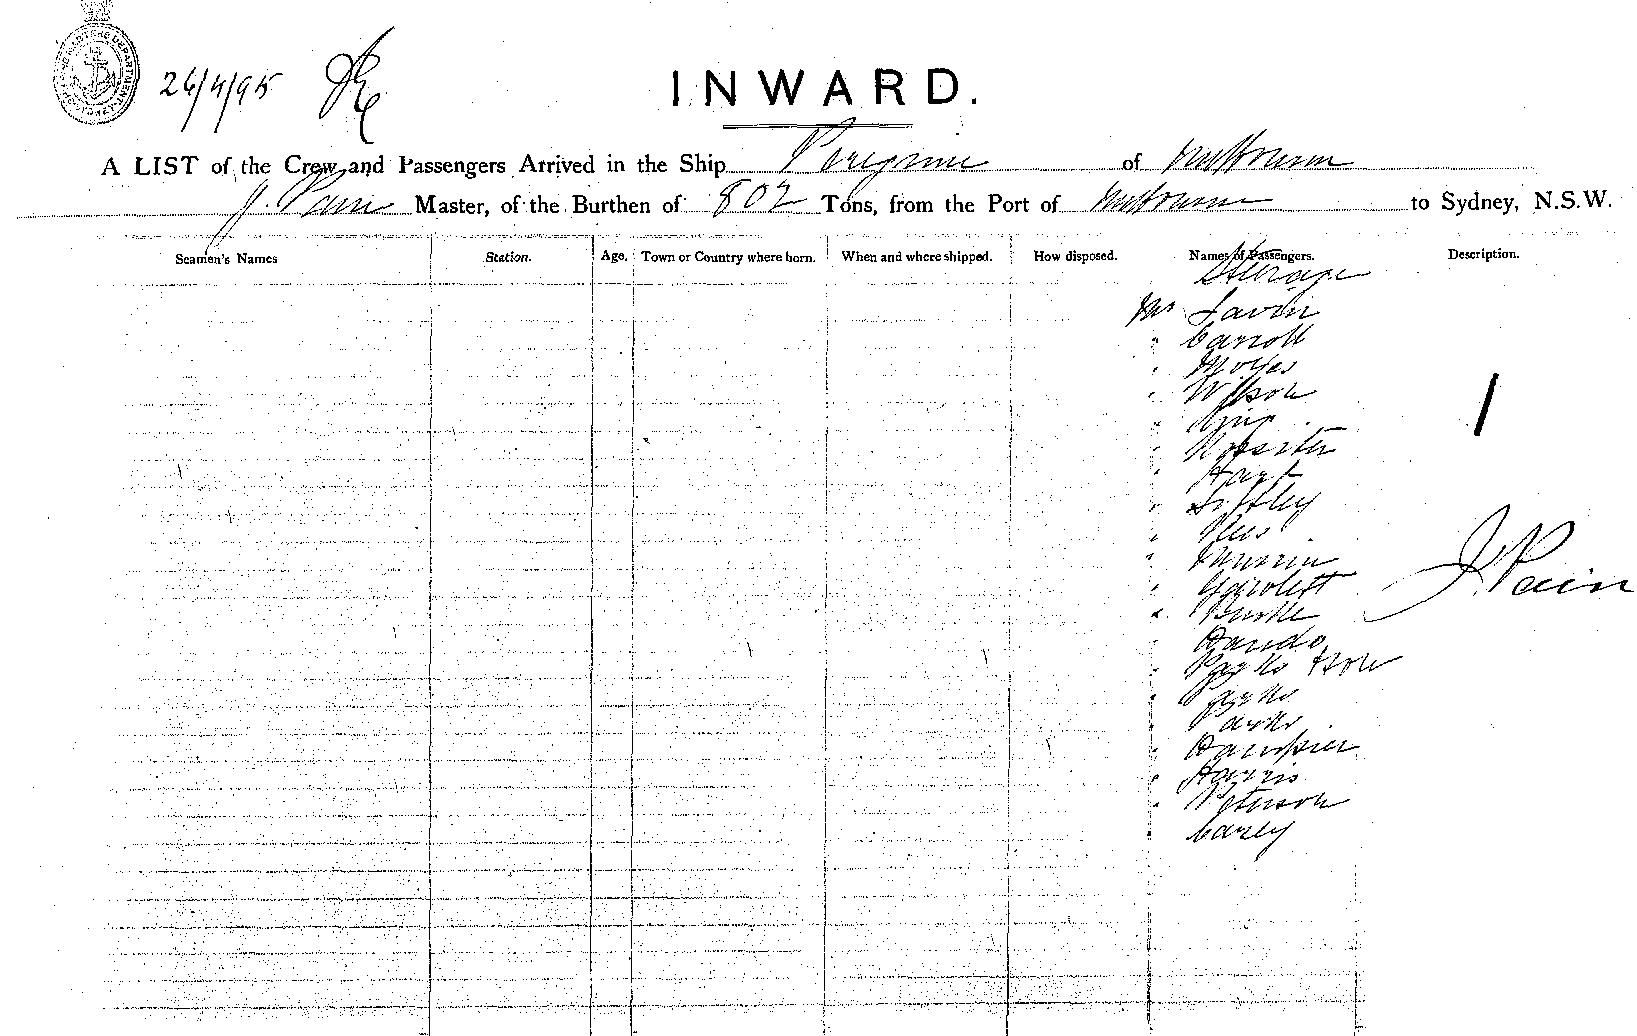 26/4/95
INWARD.
A LIST of the Crew and Passengers Arrived in the Ship Peregrine of Melbourne
J. Pain Master, of the Burthen of 802 Tons, from the Port of Melbourne to Sydney, N.S.W.
Seamen's Names Station. Age. Town or Country where born. When and where shipped. How disposed. Names of Passengers. Description.
Steerage
Mr Lavin
" Carroll
" Moyes
" Wilson
" King
" Rossiter
" Hart
"
"
"
"
"
" Hando
" Parks
" Parks
" Parks
" Dampier
" Harris
" Peterson
" Carey
J. Pain